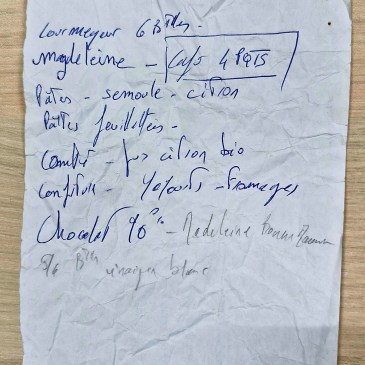 Courmayeur 6 Btlles -
magdeleine - Cafs 4 PQTS
Pâtes - semoule - citron
Pâttes feuilletées -
Comté - jus citron bio
Confiture - Yoyourts - Fromages
Chocolat 70% - Madeleine bonne Maman
Btlle vinaigre blanc